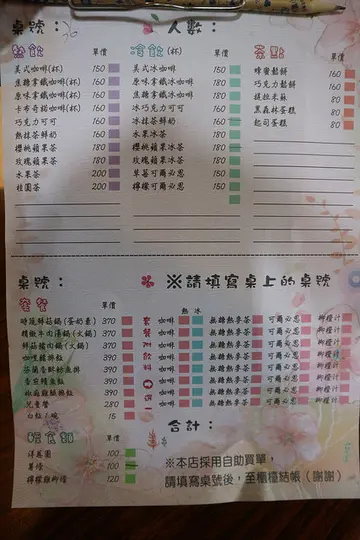 桌號： 人數：
熱飲 單價 冷飲(杯) 單價 茶點 單價
美式咖啡(杯) 150 美式冰咖啡 150 蜂蜜鬆餅 160
焦糖拿鐵咖啡(杯) 160 原味拿鐵冰咖啡 160 巧克力鬆餅 160
原味拿鐵咖啡(杯) 160 焦糖拿鐵冰咖啡 160 提拉米蘇 80
卡布奇諾咖啡(杯) 160 冰巧克力可可 160 黑森林蛋糕 80
巧克力可可 160 冰抹茶鮮奶 160 起司蛋糕 80
熱抹茶鮮奶 160 水果冰茶 180
櫻桃蘋果茶 180 櫻桃蘋果冰茶 180
玫瑰蘋果茶 180 玫瑰蘋果冰茶 180
水果茶 200 草莓可爾必思 150
桂圓茶 200 檸檬可爾必思 150
桌號： ※請填寫桌上的桌號
套餐 單價 熱 冰
時蔬鮮菇鍋(蛋奶素) 370 套 咖啡 無糖熱麥茶 可爾必思 柳橙汁
精燉牛肉湯鍋(火鍋) 370 餐 咖啡 無糖熱麥茶 可爾必思 柳橙汁
鮮菇豬肉鍋(火鍋) 370 附 咖啡 無糖熱麥茶 可爾必思 柳橙汁
390 飲 咖啡 無糖熱麥茶 可爾必思 柳橙汁
390 料 咖啡 無糖熱麥茶 可爾必思 柳橙汁
390 咖啡 無糖熱麥茶 可爾必思 柳橙汁
390 選 咖啡 無糖熱麥茶 可爾必思 柳橙汁
兒童餐 280 咖啡 無糖熱麥茶 可爾必思 柳橙汁
15
輕食類 單價 合計：
洋蔥圈 100
薯條 100 ※本店採用自助買單，
檸檬雞柳條 120 請填寫桌號後，至櫃檯結帳（謝謝）